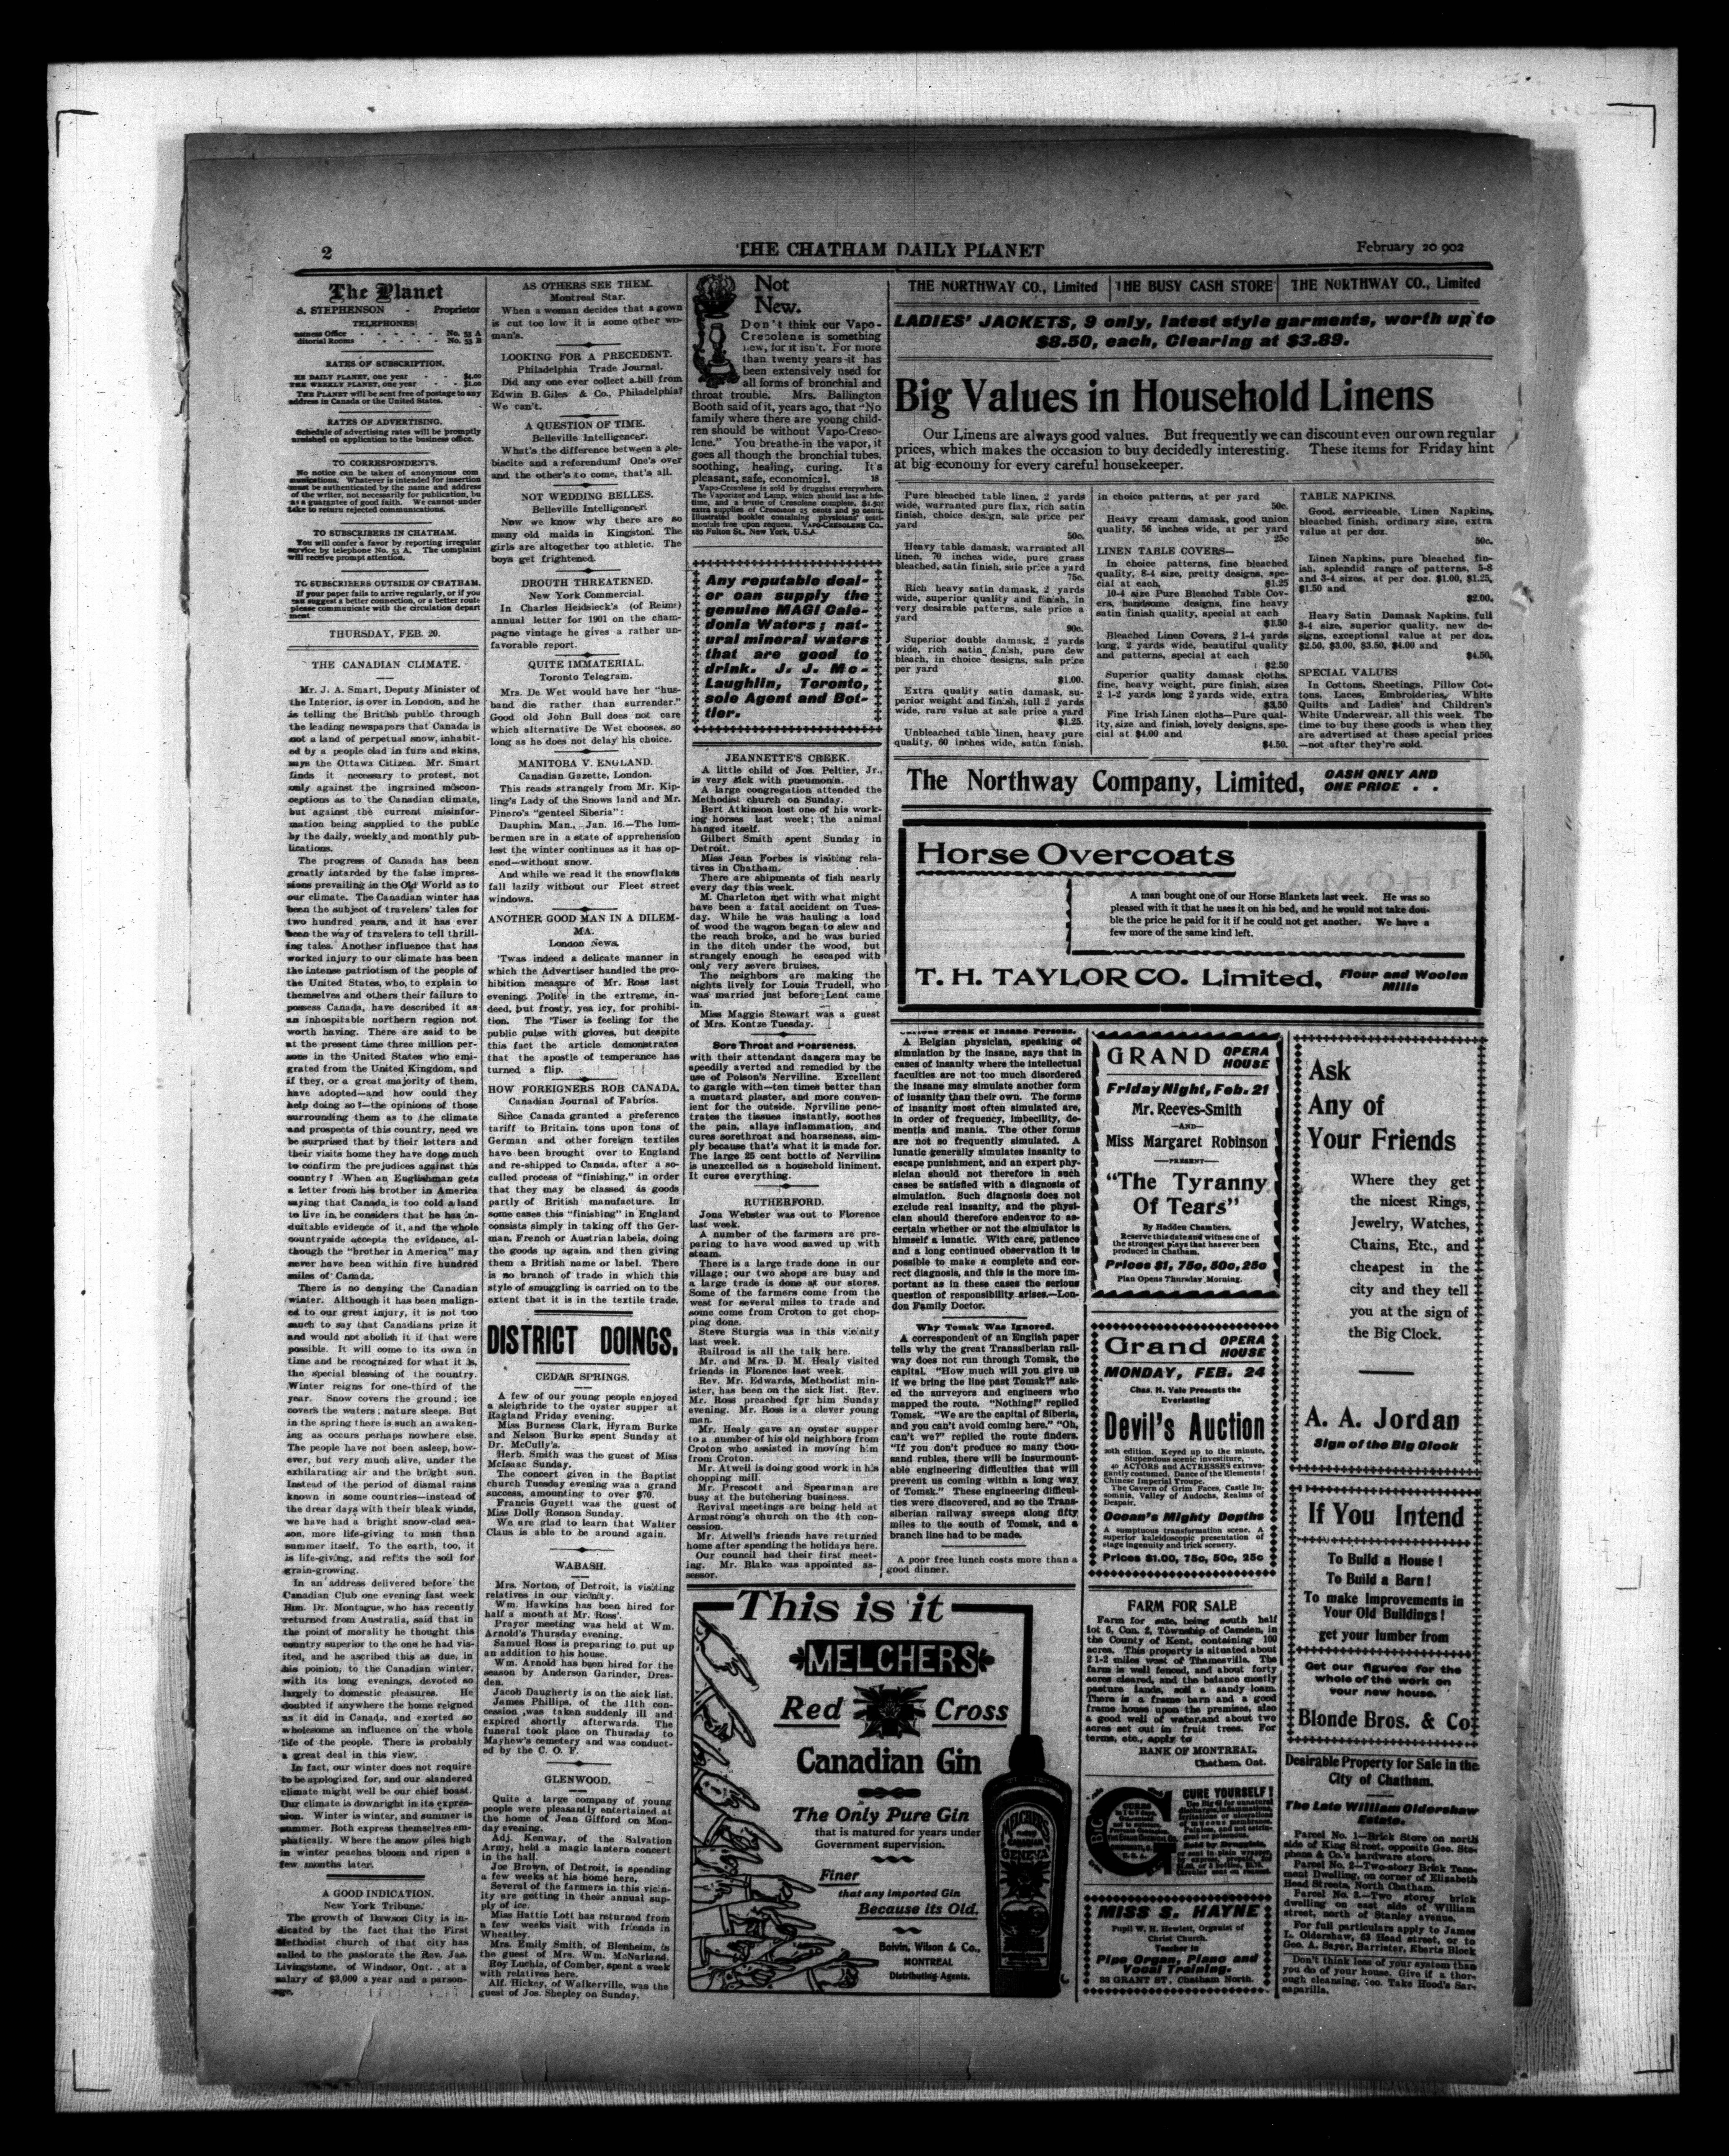 2
THE CHATHAM DAILY PLANET
February 20 902
The Planet
A. STEPHENSON - Proprietor
TELEPHONES:
usiness Office - - - - - No. 53 A
ditorial Rooms - - - - - No. 53 B
RATES OF SUBSCRIPTION.
HE DAILY PLANET, one year - - $4.00
THE WEEKLY PLANET, one year - - $1.00
THE PLANET will be sent free of postage to any
address in Canada or the United States.
RATES OF ADVERTISING.
Schedule of advertising rates will be promptly
urnished on application to the business office.
TO CORRESPONDENTS.
No notice can be taken of anonymous com
munications. Whatever is intended for insertion
must be authenticated by the name and address
of the writer, not necessarily for publication, bu
as a guarantee of good faith. We cannot under
take to return rejected communications.
TO SUBSCRIBERS IN CHATHAM.
You will confer a favor by reporting irregular
service by telephone No. 53 A. The complaint
will receive prompt attention.
TO SUBSCRIBERS OUTSIDE OF CHATHAM.
If your paper fails to arrive regularly, or if you
can suggest a better connection, or a better route
please communicate with the circulation depart
ment
THURSDAY, FEB. 20.
THE CANADIAN CLIMATE.
Mr. J. A. Smart, Deputy Minister of
the Interior, is over in London, and he
is telling the British public through
the leading newspapers that Canada is
not a land of perpetual snow, inhabit-
ed by a people clad in furs and skins,
says the Ottawa Citizen. Mr. Smart
finds it necessary to protest, not
only against the ingrained miscon-
ceptions as to the Canadian climate,
but against the current misinfor-
mation being supplied to the public
by the daily, weekly and monthly pub-
lications.
The progress of Canada has been
greatly retarded by the false impres-
sions prevailing in the Old World as to
our climate. The Canadian winter has
been the subject of travelers' tales for
two hundred years, and it has ever
been the way of travelers to tell thrill-
ing tales. Another influence that has
worked injury to our climate has been
the intense patriotism of the people of
the United States, who, to explain to
themselves and others their failure to
possess Canada, have described it as
an inhospitable northern region not
worth having. There are said to be
at the present time three million per-
sons in the United States who emi-
grated from the United Kingdom, and
if they, or a great majority of them,
have adopted—and how could they
help doing so?—the opinions of those
surrounding them as to the climate
and prospects of this country, need we
be surprised that by their letters and
their visits home they have done much
to confirm the prejudices against this
country? When an Englishman gets
a letter from his brother in America
saying that Canada is too cold a land
to live in, he considers that he has in-
duitable evidence of it, and the whole
countryside accepts the evidence, al-
though the "brother in America" may
never have been within five hundred
miles of Canada.
There is no denying the Canadian
winter. Although it has been malign-
ed to our great injury, it is not too
much to say that Canadians prize it
and would not abolish it if that were
possible. It will come to its own in
time and be recognized for what it is,
the special blessing of the country.
Winter reigns for one-third of the
year. Snow covers the ground; ice
covers the waters; nature sleeps. But
in the spring there is such an awaken-
ing as occurs perhaps nowhere else.
The people have not been asleep, how-
ever, but very much alive, under the
exhilarating air and the bright sun.
Instead of the period of dismal rains
known in some countries—instead of
the drear days with their bleak winds,
we have had a bright snow-clad sea-
son, more life-giving to man than
summer itself. To the earth, too, it
is life-giving, and refits the soil for
grain-growing.
In an address delivered before the
Canadian Club one evening last week
Hon. Dr. Montague, who has recently
returned from Australia, said that in
the point of morality he thought this
country superior to the one he had vis-
ited, and he ascribed this as due, in
his poinion, to the Canadian winter,
with its long evenings, devoted so
largely to domestic pleasures. He
doubted if anywhere the home reigned
as it did in Canada, and exerted so
wholesome an influence on the whole
life of the people. There is probably
a great deal in this view.
In fact, our winter does not require
to be apologized for, and our slandered
climate might well be our chief boast.
Our climate is downright in its expres-
sion. Winter is winter, and summer is
summer. Both express themselves em-
phatically. Where the snow piles high
in winter peaches bloom and ripen a
few months later.
A GOOD INDICATION.
New York Tribune.
The growth of Dawson City is in-
dicated by the fact that the First
Methodist church of that city has
called to the pastorate the Rev. Jas.
Livingstone, of Windsor, Ont., at a
salary of $3,000 a year and a parson-
age.
AS OTHERS SEE THEM.
Montreal Star.
When a woman decides that a gown
is cut too low it is some other wo-
man's.
LOOKING FOR A PRECEDENT.
Philadelphia Trade Journal.
Did any one ever collect a bill from
Edwin B. Giles & Co., Philadelphia?
We can't.
A QUESTION OF TIME.
Belleville Intelligencer.
What's the difference between a ple-
biscite and a referendum? One's over
and the other's to come, that's all.
NOT WEDDING BELLES.
Belleville Intelligencer.
Now we know why there are so
many old maids in Kingston. The
girls are altogether too athletic. The
boys get frightened.
DROUTH THREATENED.
New York Commercial.
In Charles Heidsieck's (of Reims)
annual letter for 1901 on the cham-
pagne vintage he gives a rather un-
favorable report.
QUITE IMMATERIAL.
Toronto Telegram.
Mrs. De Wet would have her "hus-
band die rather than surrender."
Good old John Bull does not care
which alternative De Wet chooses, so
long as he does not delay his choice.
MANITOBA V. ENGLAND.
Canadian Gazette, London.
This reads strangely from Mr. Kip-
ling's Lady of the Snows land and Mr.
Pinero's "genteel Siberia":
Dauphin, Man., Jan. 16.—The lum-
bermen are in a state of apprehension
lest the winter continues as it has op-
ened—without snow.
And while we read it the snowflakes
fall lazily without our Fleet street
windows.
ANOTHER GOOD MAN IN A DILEM-
MA.
London News.
'Twas indeed a delicate manner in
which the Advertiser handled the pro-
hibition measure of Mr. Ross last
evening. Polite in the extreme, in-
deed, but frosty, yea icy, for prohibi-
tion. The 'Tiser is feeling for the
public pulse with gloves, but despite
this fact the article demonstrates
that the apostle of temperance has
turned a flip.
HOW FOREIGNERS ROB CANADA.
Canadian Journal of Fabrics.
Since Canada granted a preference
tariff to Britain, tons upon tons of
German and other foreign textiles
have been brought over to England
and re-shipped to Canada, after a so-
called process of "finishing," in order
that they may be classed as goods
partly of British manufacture. In
some cases this "finishing" in England
consists simply in taking off the Ger-
man, French or Austrian labels, doing
the goods up again, and then giving
them a British name or label. There
is no branch of trade in which this
style of smuggling is carried on to the
extent that it is in the textile trade.
DISTRICT DOINGS.
CEDAR SPRINGS.
A few of our young people enjoyed
a sleighride to the oyster supper at
Ragland Friday evening.
Miss Burness Clark, Hyram Burke
and Nelson Burke spent Sunday at
Dr. McCully's.
Herb. Smith was the guest of Miss
McIsaac Sunday.
The concert given in the Baptist
church Tuesday evening was a grand
success, amounting to over $70.
Francis Guyett was the guest of
Miss Dolly Ronson Sunday.
We are glad to learn that Walter
Claus is able to be around again.
WABASH.
Mrs. Norton, of Detroit, is visiting
relatives in our vicinity.
Wm. Hawkins has been hired for
half a month at Mr. Ross'.
Prayer meeting was held at Wm.
Arnold's Thursday evening.
Samuel Ross is preparing to put up
an addition to his house.
Wm. Arnold has been hired for the
season by Anderson Garinder, Dres-
den.
Jacob Daugherty is on the sick list.
James Phillips, of the 11th con-
cession ,was taken suddenly ill and
expired shortly afterwards. The
funeral took place on Thursday to
Mayhew's cemetery and was conduct-
ed by the C. O. F.
GLENWOOD.
Quite a large company of young
people were pleasantly entertained at
the home of Jean Gifford on Mon-
day evening.
Adj. Kenway, of the Salvation
Army, held a magic lantern concert
in the hall.
Joe Brown, of Detroit, is spending
a few weeks at his home here.
Several of the farmers in this vicin-
ity are getting in their annual sup-
ply of ice.
Miss Hattie Lott has returned from
a few weeks visit with friends in
Wheatley.
Mrs. Emily Smith, of Blenheim, is
the guest of Mrs. Wm. McNarland.
Roy Luchia, of Comber, spent a week
with relatives here.
Alf. Hickey, of Walkerville, was the
guest of Jos. Shepley on Sunday.
Not
New.
Don't think our Vapo-
Cresolene is something
new, for it isn't. For more
than twenty years it has
been extensively used for
all forms of bronchial and
throat trouble. Mrs. Ballington
Booth said of it, years ago, that "No
family where there are young child-
ren should be without Vapo-Creso-
lene." You breathe in the vapor, it
goes all though the bronchial tubes,
soothing, healing, curing. It's
pleasant, safe, economical. 18
Vapo-Cresolene is sold by druggists everywhere.
The Vaporizer and Lamp, which should last a life-
time, and a bottle of Cresolene complete, $1.50;
extra supplies of Cresolene 25 cents and 50 cents.
Illustrated booklet containing physicians' testi-
monials free upon request. VAPO-CRESOLENE CO.,
180 Fulton St., New York, U.S.A.
Any reputable deal-
er can supply the
genuine MAGI Cale-
donia Waters; nat-
ural mineral waters
that are good to
drink. J. J. Mc-
Laughlin, Toronto,
sole Agent and Bot-
tler.
JEANNETTE'S CREEK.
A little child of Jos. Peltier, Jr.,
is very sick with pneumonia.
A large congregation attended the
Methodist church on Sunday.
Bert Atkinson lost one of his work-
ing horses last week; the animal
hanged itself.
Gilbert Smith spent Sunday in
Detroit.
Miss Jean Forbes is visiting rela-
tives in Chatham.
There are shipments of fish nearly
every day this week.
M. Charleton met with what might
have been a fatal accident on Tues-
day. While he was hauling a load
of wood the wagon began to slew and
the reach broke, and he was buried
in the ditch under the wood, but
strangely enough he escaped with
only very severe bruises.
The neighbors are making the
nights lively for Louis Trudell, who
was married just before Lent came
in.
Miss Maggie Stewart was a guest
of Mrs. Kontze Tuesday.
Sore Throat and Hoarseness.
with their attendant dangers may be
speedily averted and remedied by the
use of Polson's Nerviline. Excellent
to gargle with—ten times better than
a mustard plaster, and more conven-
ient for the outside. Nerviline pene-
trates the tissues instantly, soothes
the pain, allays inflammation, and
cures sorethroat and hoarseness, sim-
ply because that's what it is made for.
The large 25 cent bottle of Nerviline
is unexcelled as a household liniment.
It cures everything.
RUTHERFORD.
Jona Webster was out to Florence
last week.
A number of the farmers are pre-
paring to have wood sawed up with
steam.
There is a large trade done in our
village; our two shops are busy and
a large trade is done at our stores.
Some of the farmers come from the
west for several miles to trade and
some come from Croton to get chop-
ping done.
Steve Sturgis was in this vicinity
last week.
Railroad is all the talk here.
Mr. and Mrs. D. M. Healy visited
friends in Florence last week.
Rev. Mr. Edwards, Methodist min-
ister, has been on the sick list. Rev.
Mr. Ross preached for him Sunday
evening. Mr. Ross is a clever young
man.
Mr. Healy gave an oyster supper
to a number of his old neighbors from
Croton who assisted in moving him
from Croton.
Mr. Atwell is doing good work in his
chopping mill.
Mr. Prescott and Spearman are
busy at the butchering business.
Revival meetings are being held at
Armstrong's church on the 4th con-
cession.
Mr. Atwell's friends have returned
home after spending the holidays here.
Our council had their first meet-
ing. Mr. Blake was appointed as-
sessor.
THE NORTHWAY CO., Limited
THE BUSY CASH STORE
THE NORTHWAY CO., Limited
LADIES' JACKETS, 9 only, latest style garments, worth up to
$8.50, each, Clearing at $3.89.
Big Values in Household Linens
Our Linens are always good values. But frequently we can discount even our own regular
prices, which makes the occasion to buy decidedly interesting. These items for Friday hint
at big economy for every careful housekeeper.
Pure bleached table linen, 2 yards
wide, warranted pure flax, rich satin
finish, choice design, sale price per
yard
50c.
Heavy table damask, warranted all
linen, 70 inches wide, pure grass
bleached, satin finish, sale price a yard
75c.
Rich heavy satin damask, 2 yards
wide, superior quality and finish, in
very desirable patterns, sale price a
yard
90c.
Superior double damask, 2 yards
wide, rich satin finish, pure dew
bleach, in choice designs, sale price
per yard
$1.00.
Extra quality satin damask, su-
perior weight and finish, full 2 yards
wide, rare value at sale price a yard
$1.25.
Unbleached table linen, heavy pure
quality, 60 inches wide, satin finish,
in choice patterns, at per yard
50c.
Heavy cream damask, good union
quality, 56 inches wide, at per yard
25c
LINEN TABLE COVERS—
In choice patterns, fine bleached
quality, 8-4 size, pretty designs, spe-
cial at each, $1.25
10-4 size Pure Bleached Table Cov-
ers, handsome designs, fine heavy
satin finish quality, special at each
$2.50
Bleached Linen Covers, 2 1-4 yards
long, 2 yards wide, beautiful quality
and patterns, special at each
$2.50
Superior quality damask cloths,
fine, heavy weight, pure finish, sizes
2 1-2 yards long 2 yards wide, extra
$3.50
Fine Irish Linen cloths—Pure qual-
ity, size and finish, lovely designs, spe-
cial at $4.00 and
$4.50.
TABLE NAPKINS.
Good, serviceable, Linen Napkins,
bleached finish, ordinary size, extra
value at per doz.
50c.
Linen Napkins, pure bleached fin-
ish, splendid range of patterns, 5-8
and 3-4 sizes, at per doz. $1.00, $1.25,
$1.50 and
$2.00.
Heavy Satin Damask Napkins, full
3-4 size, superior quality, new de-
signs, exceptional value at per doz.
$2.50, $3.00, $3.50, $4.00 and
$4.50.
SPECIAL VALUES
In Cottons, Sheetings, Pillow Cot-
tons, Laces, Embroideries, White
Quilts and Ladies' and Children's
White Underwear, all this week. The
time to buy these goods is when they
are advertised at these special prices
—not after they're sold.
The Northway Company, Limited,
CASH ONLY AND
ONE PRICE . .
Horse Overcoats
A man bought one of our Horse Blankets last week. He was so
pleased with it that he uses it on his bed, and he would not take dou-
ble the price he paid for it if he could not get another. We have a
few more of the same kind left.
T. H. TAYLOR CO. Limited,
Flour and Woolen
Mills
Freak of Insane Persons.
A Belgian physician, speaking of
simulation by the insane, says that in
cases of insanity where the intellectual
faculties are not too much disordered
the insane may simulate another form
of insanity than their own. The forms
of insanity most often simulated are,
in order of frequency, imbecility, de-
mentia and mania. The other forms
are not so frequently simulated. A
lunatic generally simulates insanity to
escape punishment, and an expert phy-
sician should not therefore in such
cases be satisfied with a diagnosis of
simulation. Such diagnosis does not
exclude real insanity, and the physi-
cian should therefore endeavor to as-
certain whether or not the simulator is
himself a lunatic. With care, patience
and a long continued observation it is
possible to make a complete and cor-
rect diagnosis, and this is the more im-
portant as in these cases the serious
question of responsibility arises.—Lon-
don Family Doctor.
Why Tomsk Was Ignored.
A correspondent of an English paper
tells why the great Transsiberian rail-
way does not run through Tomsk, the
capital. "How much will you give us
if we bring the line past Tomsk?" ask-
ed the surveyors and engineers who
mapped the route. "Nothing!" replied
Tomsk. "We are the capital of Siberia,
and you can't avoid coming here." "Oh,
can't we?" replied the route finders.
"If you don't produce so many thou-
sand rubles, there will be insurmount-
able engineering difficulties that will
prevent us coming within a long way
of Tomsk." These engineering difficul-
ties were discovered, and so the Trans-
siberian railway sweeps along fifty
miles to the south of Tomsk, and a
branch line had to be made.
A poor free lunch costs more than a
good dinner.
This is it
MELCHERS
Red Cross
Canadian Gin
The Only Pure Gin
that is matured for years under
Government supervision.
Finer
that any imported Gin
Because its Old.
Boivin, Wilson & Co.,
MONTREAL
Distributing Agents.
MELCHERS
CANADIAN
GENEVA
GRAND OPERA
HOUSE
Friday Night, Feb. 21
Mr. Reeves-Smith
—AND—
Miss Margaret Robinson
—PRESENT—
"The Tyranny
Of Tears"
By Haddon Chambers.
Reserve this date and witness one of
the strongest plays that has ever been
produced in Chatham.
Prices $1, 75c, 50c, 25c
Plan Opens Thursday Morning.
Grand OPERA
HOUSE
MONDAY, FEB. 24
Chas. H. Yale Presents the
Everlasting
Devil's Auction
20th edition. Keyed up to the minute.
Stupendous scenic investiture,
40 ACTORS and ACTRESSES extrava-
gantly costumed. Dance of the Elements!
Chinese Imperial Troupe.
The Cavern of Grim Faces, Castle In-
somnia, Valley of Audocha, Realms of
Despair.
Ocean's Mighty Depths
A sumptuous transformation scene. A
superior kaleidoscopic presentation of
stage ingenuity and trick scenery.
Prices $1.00, 75c, 50c, 25c
FARM FOR SALE
Farm for sale, being south half
lot 6, Con. 2, Township of Camden, in
the County of Kent, containing 100
acres. This property is situated about
2 1-2 miles west of Thamesville. The
farm is well fenced, and about forty
acres cleared, and the balance mostly
pasture lands, soil a sandy loam.
There is a frame barn and a good
frame house upon the premises, also
a good well of water,and about two
acres set out in fruit trees. For
terms, etc., apply to
BANK OF MONTREAL,
Chatham, Ont.
BIG G
CURE YOURSELF!
Use Big G for unnatural
discharges, inflammations,
irritations or ulcerations
of mucous membranes.
Painless, and not astrin-
gent or poisonous.
Sold by Druggists,
or sent in plain wrapper,
by express, prepaid, for
Circular sent on request.
MISS S. HAYNE
Pupil W. H. Hewlett, Organist of
Christ Church.
Teacher in
Pipe Organ, Piano and
Vocal Training.
33 GRANT ST. Chatham North.
Ask
Any of
Your Friends
Where they get
the nicest Rings,
Jewelry, Watches,
Chains, Etc., and
cheapest in the
city and they tell
you at the sign of
the Big Clock.
A. A. Jordan
Sign of the Big Clock
If You Intend
To Build a House!
To Build a Barn!
To make Improvements in
Your Old Buildings!
get your lumber from
Get our figures for the
whole of the work on
your new house.
Blonde Bros. & Co.
Desirable Property for Sale in the
City of Chatham.
The Late William Oldershaw
Estate.
Parcel No. 1—Brick Store on north
side of King Street, opposite Geo. Ste-
phens & Co.'s hardware store.
Parcel No. 2—Two-story Brick Tene-
ment Dwelling, on corner of Elizabeth
Head Streets, North Chatham.
Parcel No. 3.—Two storey brick
dwelling on east side of William
street, north of Stanley avenue.
For full particulars apply to James
L. Oldershaw, 63 Head street, or to
Geo. A. Sayer, Barrister, Eberts Block
Don't think less of your system than
you do of your house. Give it a thor-
ough cleansing, too. Take Hood's Sar-
saparilla.